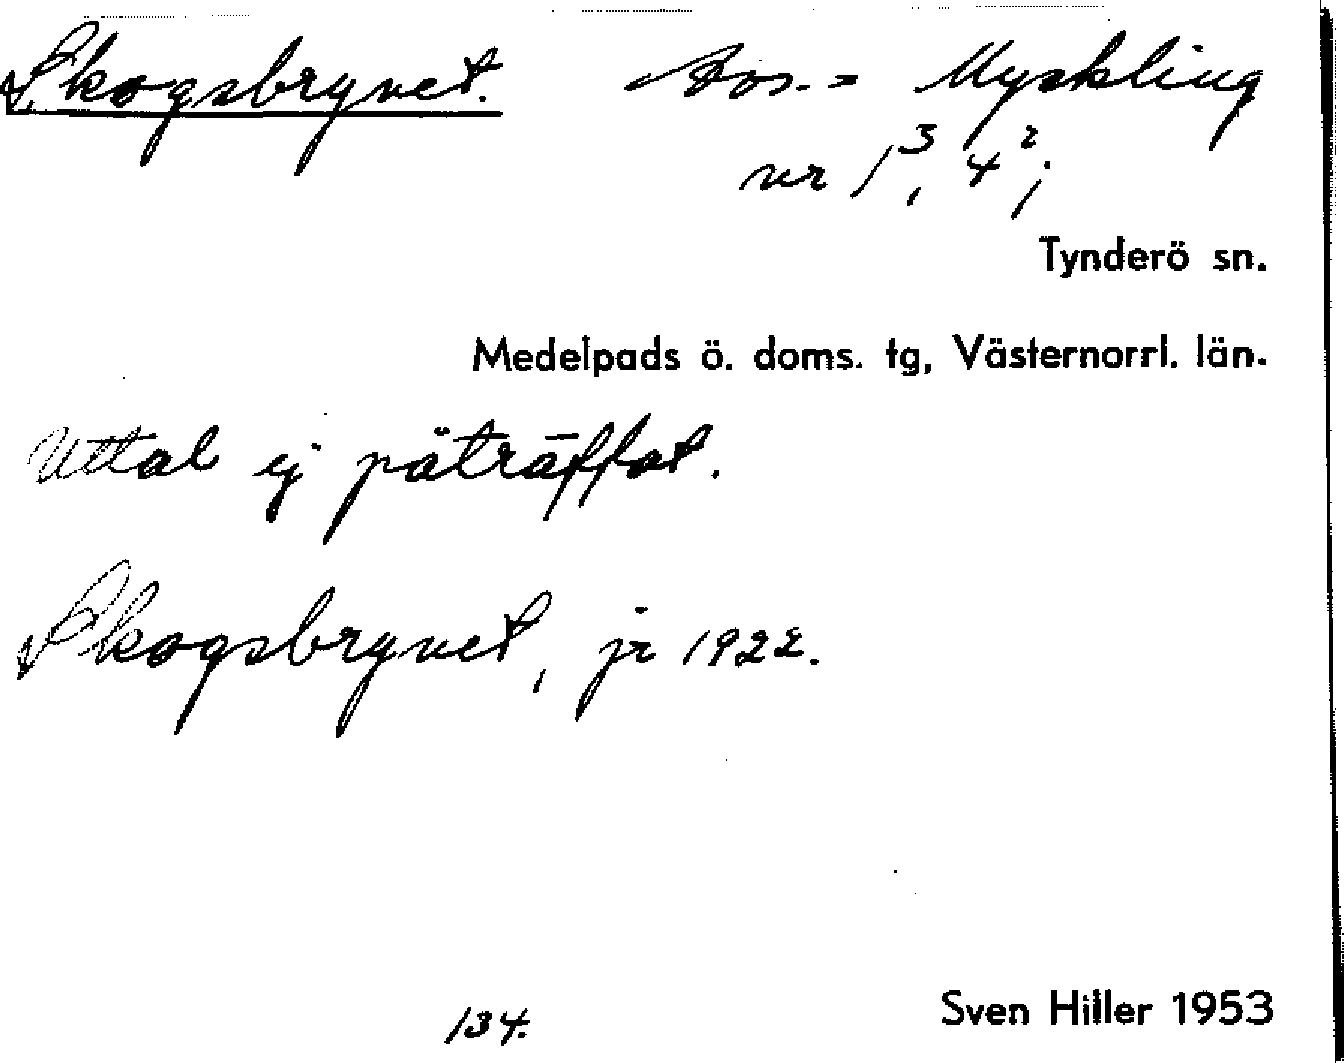 Skogsbrynet. bos. = Myskling
nr 1³, 4²;
Tynderö sn.
Medelpads ö. doms. tg, Västernorrl. län.
Uttal ej påträffat.
Skogsbrynet, jr 1922.
134.
Sven Hiller 1953